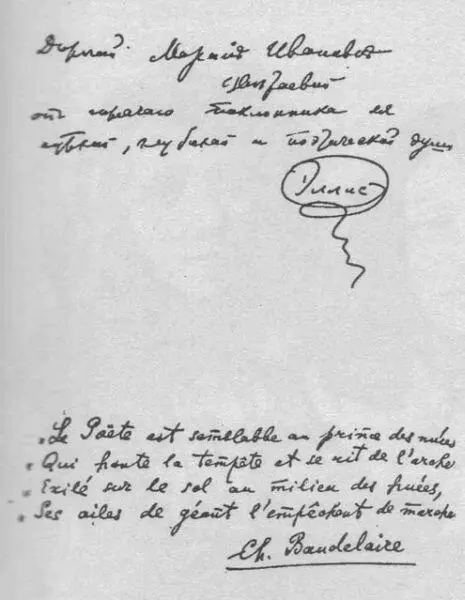 Дорогой Марине Ивановне
Цветаевой
от горячаго поклонника ея
чуткой, глубокой и поэтической души
Эллис
" Le Poëte est semblable au prince des nuées
" Qui hante la tempête et se rit de l'archer
" Exilé sur le sol au milieu des huées,
" Ses ailes de géant l'empêchent de marcher
Ch. Baudelaire